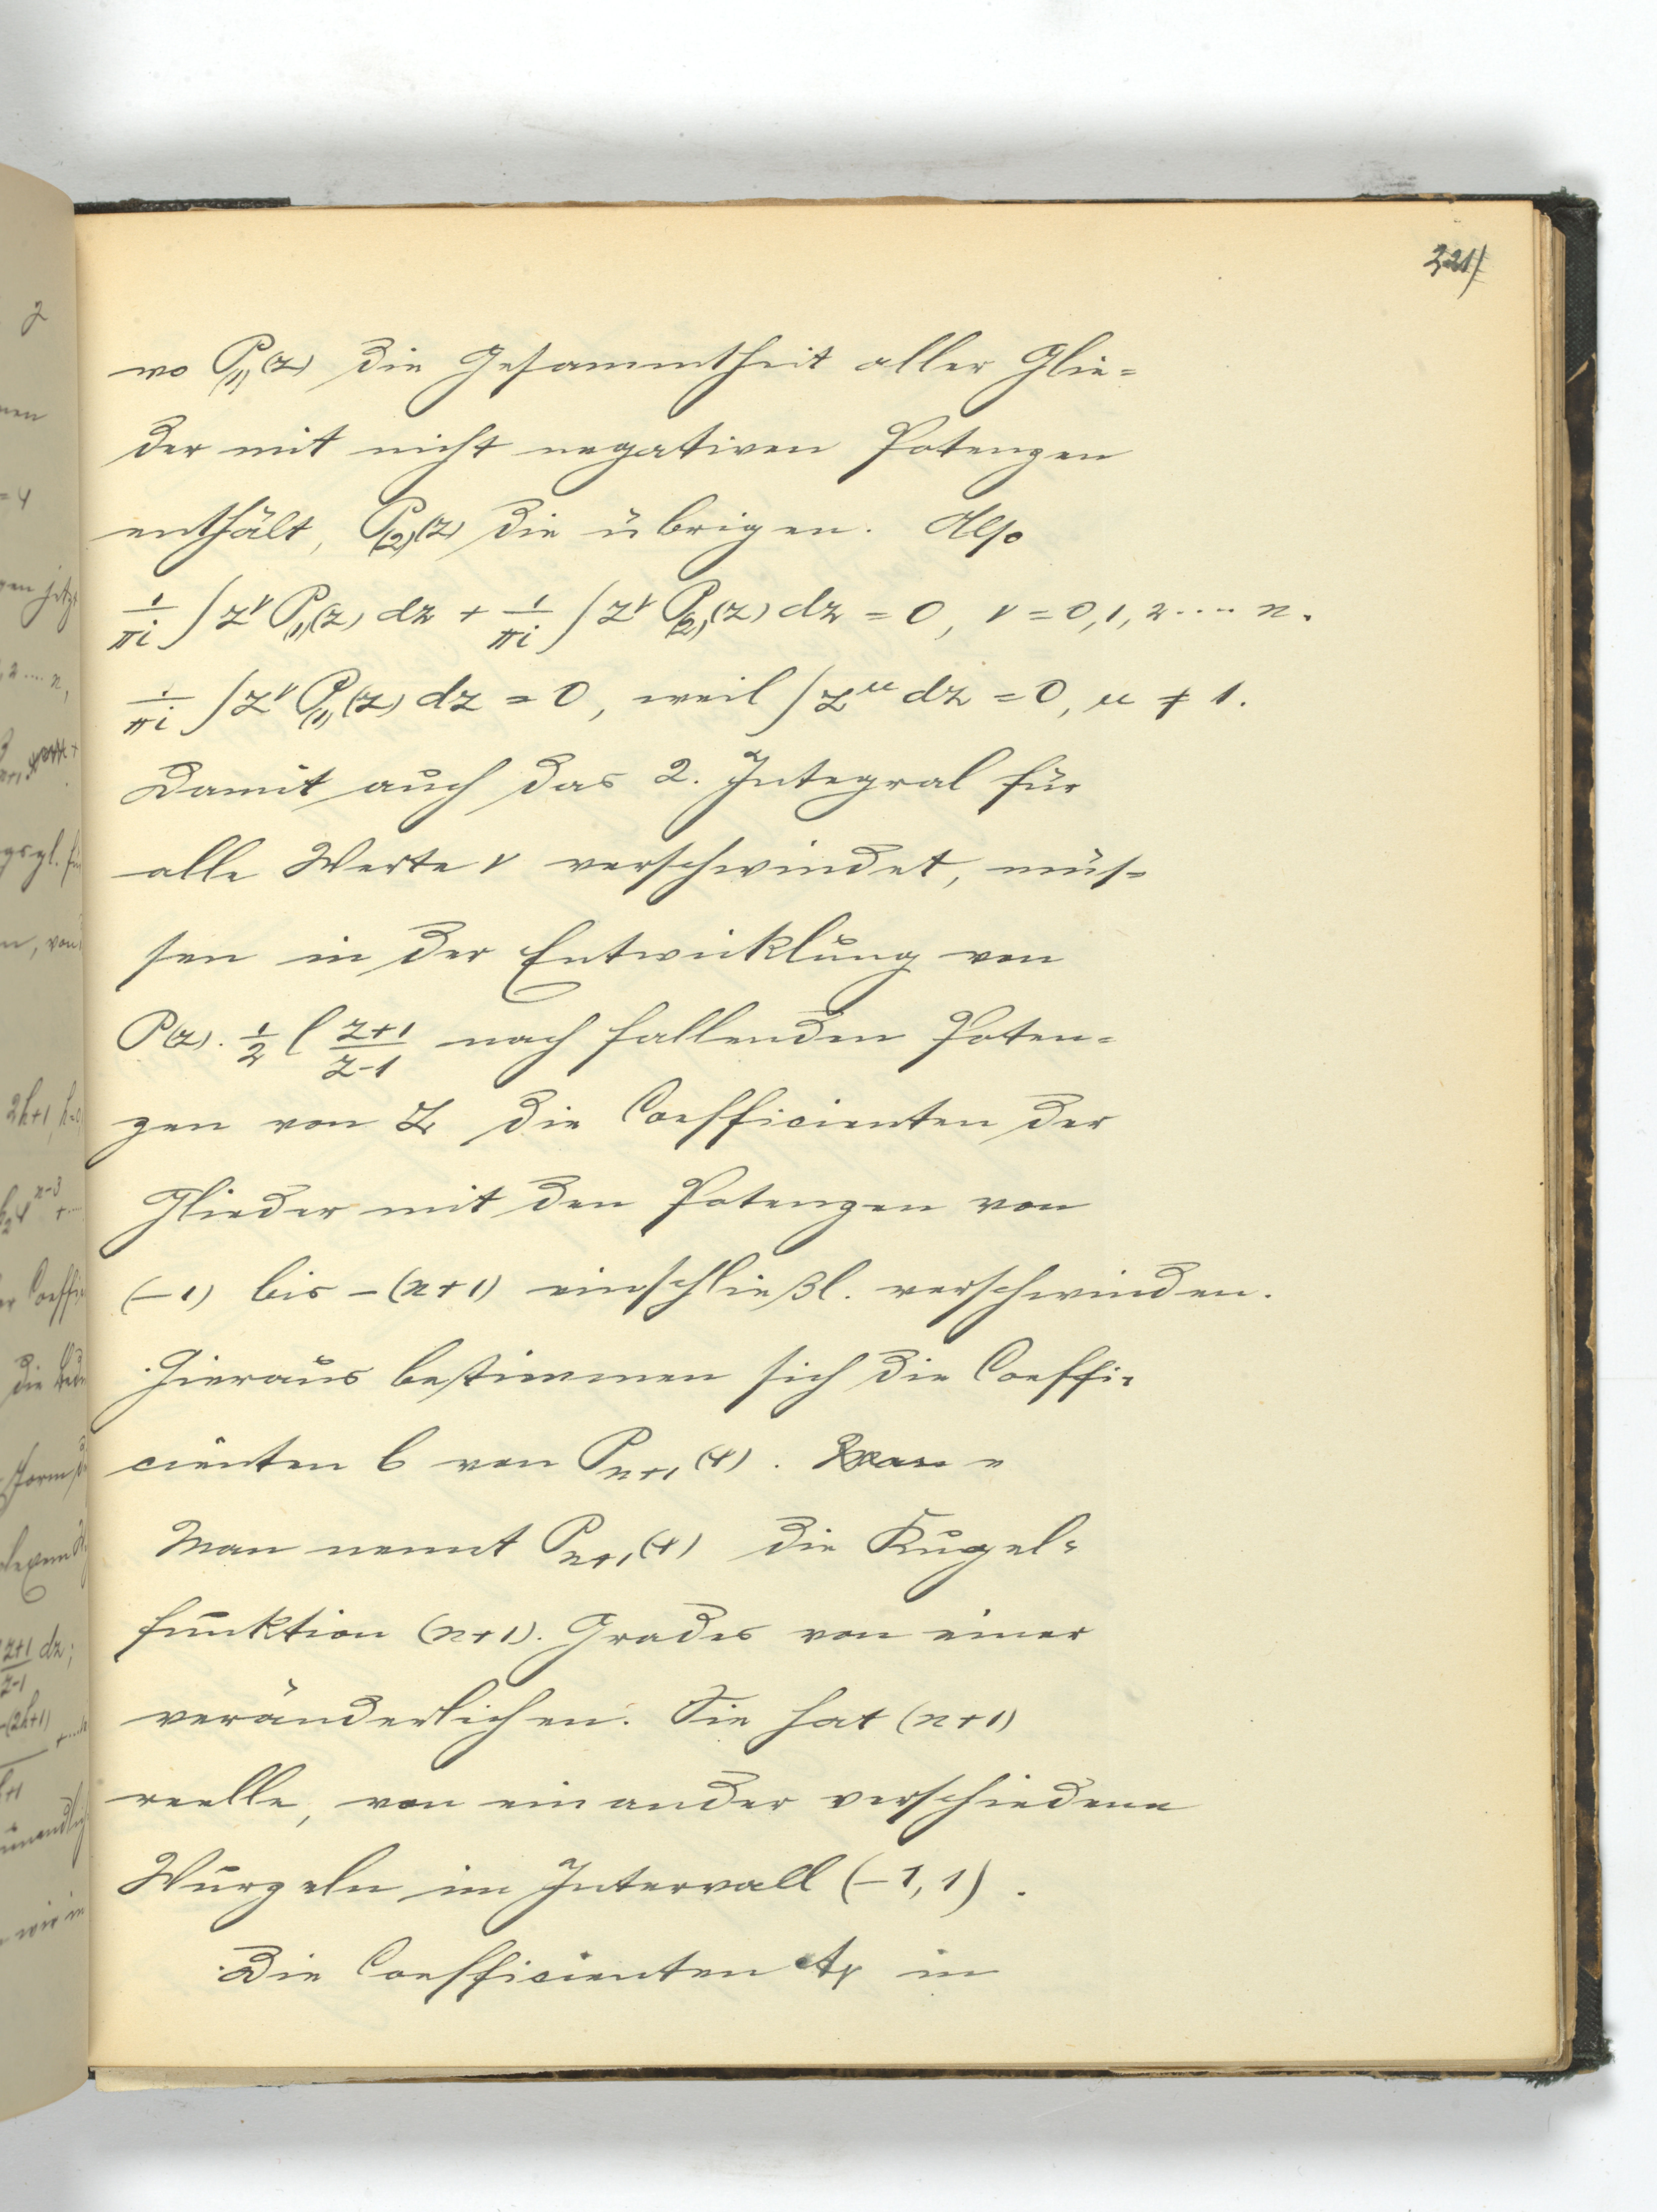 321)
wo P₍₁₎(z) die Gesammtheit aller Glie=
der mit nicht negativen Potenzen
enthält, P₍₂₎(z) die übrigen. Also
1/πi ∫ z^ν P₍₁₎(z) dz + 1/πi ∫ z^ν P₍₂₎(z) dz = 0, ν = 0, 1, 2 .... n.
1/πi ∫ z^ν P₍₁₎(z) dz = 0, weil ∫ z^μ dz = 0, μ ≠ 1.
Damit auch das 2. Integral für
alle Werte ν verschwindet, müs=
sen in der Entwicklung von
P(z). 1/2 l (z+1)/(z-1) nach fallenden Poten=
zen von z die Coefficienten der
Glieder mit den Potenzen von
(-1) bis -(n+1) einschließl. verschwinden.
Hieraus bestimmen sich die Coeffi=
cienten b von Pₙ₊₁(x).
Man nennt Pₙ₊₁(x) die Kugel=
funktion (n+1). Grades von einer
veränderlichen. Sie hat (n+1)
reelle, von einander verschiedene
Wurzeln im Intervall (-1, 1).
Die Coefficienten A_ν in